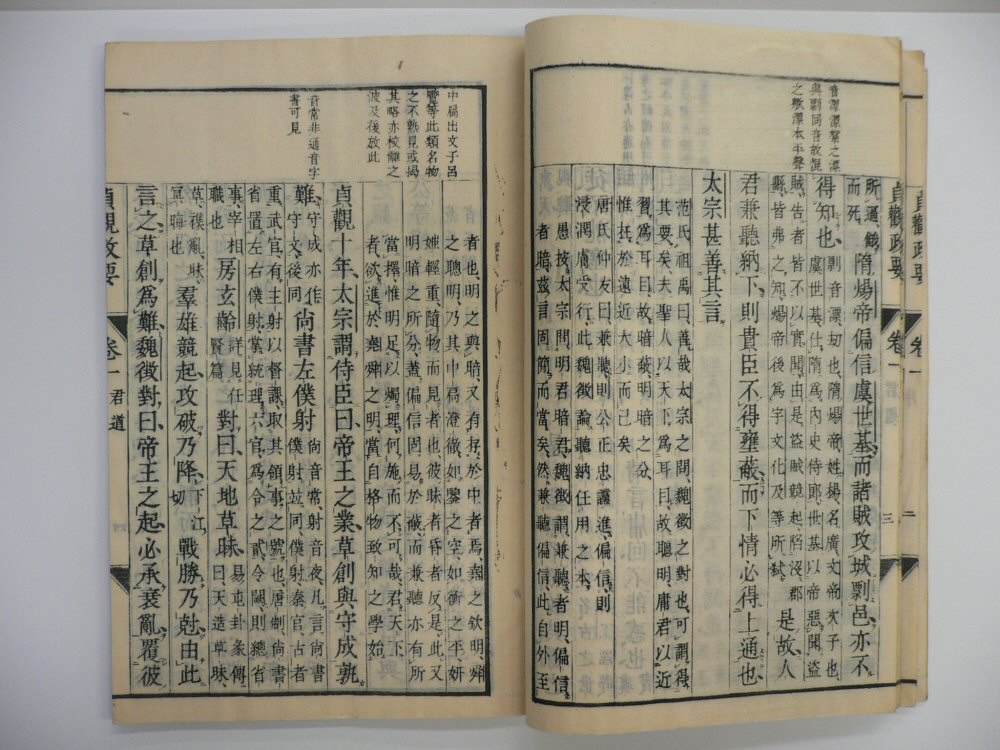 貞觀政要 卷一 二
貞觀政要 卷一 君道 三
音漂漂絮之漂
與剽同音故混
之歟漂本平聲
所逼餓
而死
隋煬帝偏信虞世基而諸賊攻城剽邑亦不
得知也
剽音漂劫也隋煬帝姓楊名廣文帝次子也
虞世基仕隋爲內史侍郎世基以帝惡聞盜
賊告者皆不以實聞由是盜賊競起陷沒郡
縣皆弗之知煬帝後爲宇文化及等所弒
是故人
君兼聽納下則貴臣不得壅蔽而下情必得上通也
太宗甚善其言
范氏祖禹曰善哉太宗之問魏徵之對也可謂得
其要矣夫聖人以天下爲耳目故聰明庸君以近
習爲耳目故暗蔽明暗之分
惟在於遠近大小而已矣
唐氏仲友曰兼聽則公正忠讜進偏信則
浸潤膚受行此魏徵論聽納任用之本
愚按太宗問明君暗君魏徵謂兼聽者明偏信
者暗茲言固簡而當矣然兼聽偏信此自外至
中扃出文子呂
覽等此類名物
之不熟見或揭
其略亦校讎之
波及後放此
音常非通音字
書可見
者也明之與暗又有存於中者焉堯之欽明舜
之聰明乃其中扃澄徹如鑒之空如衡之平妍
媸輕重隨物而見者也彼昧者昏者反是此又
明暗之所由分蓋偏信固易於蔽而兼聽亦有所
當擇惟明足以燭理何施而不可哉君天下
者欲進於堯舜之明當自格物致知之學始
貞觀十年太宗謂侍臣曰帝王之業草創與守成孰
難
守成亦作
守文後同
尚書左僕射
尚音常射音夜凡言尚書
僕射竝同僕射秦官古者
重武官有主射以督課取其領事之號也唐制尚書
省置左右僕射掌統理六官爲令之貳令闕則總省
事宰相
職也
房玄齡
詳見任
賢篇
對曰天地草昧
易屯卦彖傳
曰天造草昧
草襍亂昧
冥晦也
羣雄競起攻破乃降
下江
切
戰勝乃尅由此
言之草創爲難魏徵對曰帝王之起必承衰亂覆彼
貞觀政要 卷一 君道 四